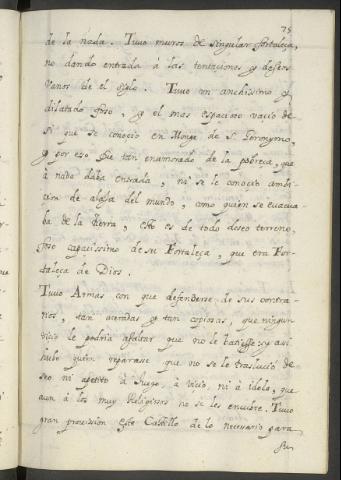 75
de la nada. Tuvo muros de singular fortaleza,
no dando entrada á las tentaciones y deseos
vanos de el siglo. Tuvo un anchissimo y
dilatado foso, y el mas espacioso vacio de
sí que se conocio en Monge de S. Geronymo,
y por eso fue tan enamorado de la pobreça, que
á nada daba entrada, ni se le conoció ambi-
cion de alaja del mundo, como quien se evacua-
ba de la tierra, este es de todo deseo terreno,
foso capacissimo de su Fortaleça, que era For-
taleça de Dios.
Tuvo Armas con que defenderse de sus contra-
rios, tan aceradas y tan copiosas, que ningun
vicio le podria asaltar que no le batiesse; y asi
hubo quien reparasse que no se le traslució de-
seo ni apetito á Juego, á vicio, ni á idolo, que
aun á los muy Religiosos no se les encubre. Tuvo
gran provission este Castillo de lo necesario para
su